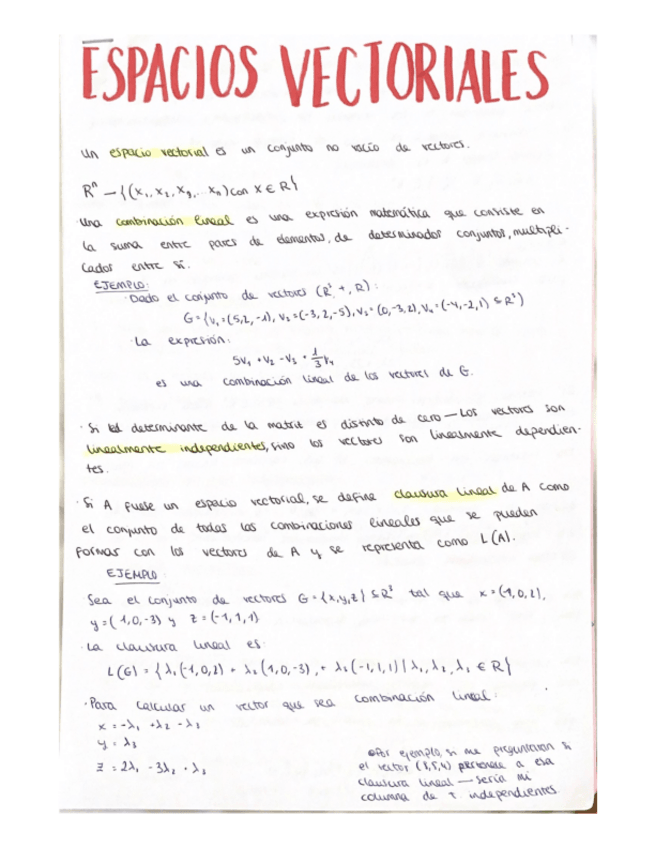 ESPACIOS VECTORIALES
Un espacio vectorial es un conjunto no vacío de vectores.
Rⁿ — {(x₁, x₂, x₃, ... xₙ) con x ∈ R}
· Una combinación lineal es una expresión matemática que consiste en
la suma entre pares de elementos, de determinados conjuntos, multipli-
cados entre sí.
EJEMPLO:
· Dado el conjunto de vectores (R³, +, R):
G = {v₁ = (5, 2, -1), v₂ = (-3, 2, -5), v₃ = (0, -3, 2), v₄ = (-4, -2, 1) ⊆ R³}
· La expresión:
5v₁ + v₂ - v₃ + 1/3 v₄
es una combinación lineal de los vectores de G.
· Si el determinante de la matriz es distinto de cero — Los vectores son
linealmente independientes, sino los vectores son linealmente dependien-
tes.
· Si A fuese un espacio vectorial, se define clausura lineal de A como
el conjunto de todas las combinaciones lineales que se pueden
formas con los vectores de A y se representa como L(A).
EJEMPLO:
Sea el conjunto de vectores G = {x, y, z} ⊆ R³ tal que x = (-1, 0, 2),
y = (1, 0, -3) y z = (-1, 1, 1)
· La clausura lineal es:
L(G) = {λ₁(-1, 0, 2) + λ₂(1, 0, -3), + λ₃(-1, 1, 1) | λ₁, λ₂, λ₃ ∈ R}
· Para calcular un vector que sea combinación lineal:
x = -λ₁ + λ₂ - λ₃
y = λ₃
z = 2λ₁ - 3λ₂ + λ₃
Por ejemplo, si me preguntaran si
el vector 5, 4) pertenece a esa
clausura lineal — sería mi
columna de t. independientes